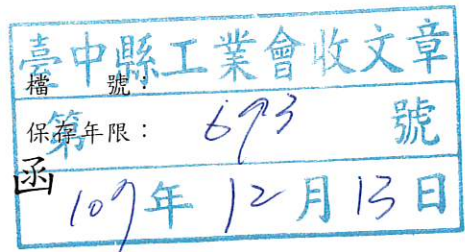 臺中縣工業會收文章
檔　　號：
保存年限：
第 693 號
函
109年12月13日